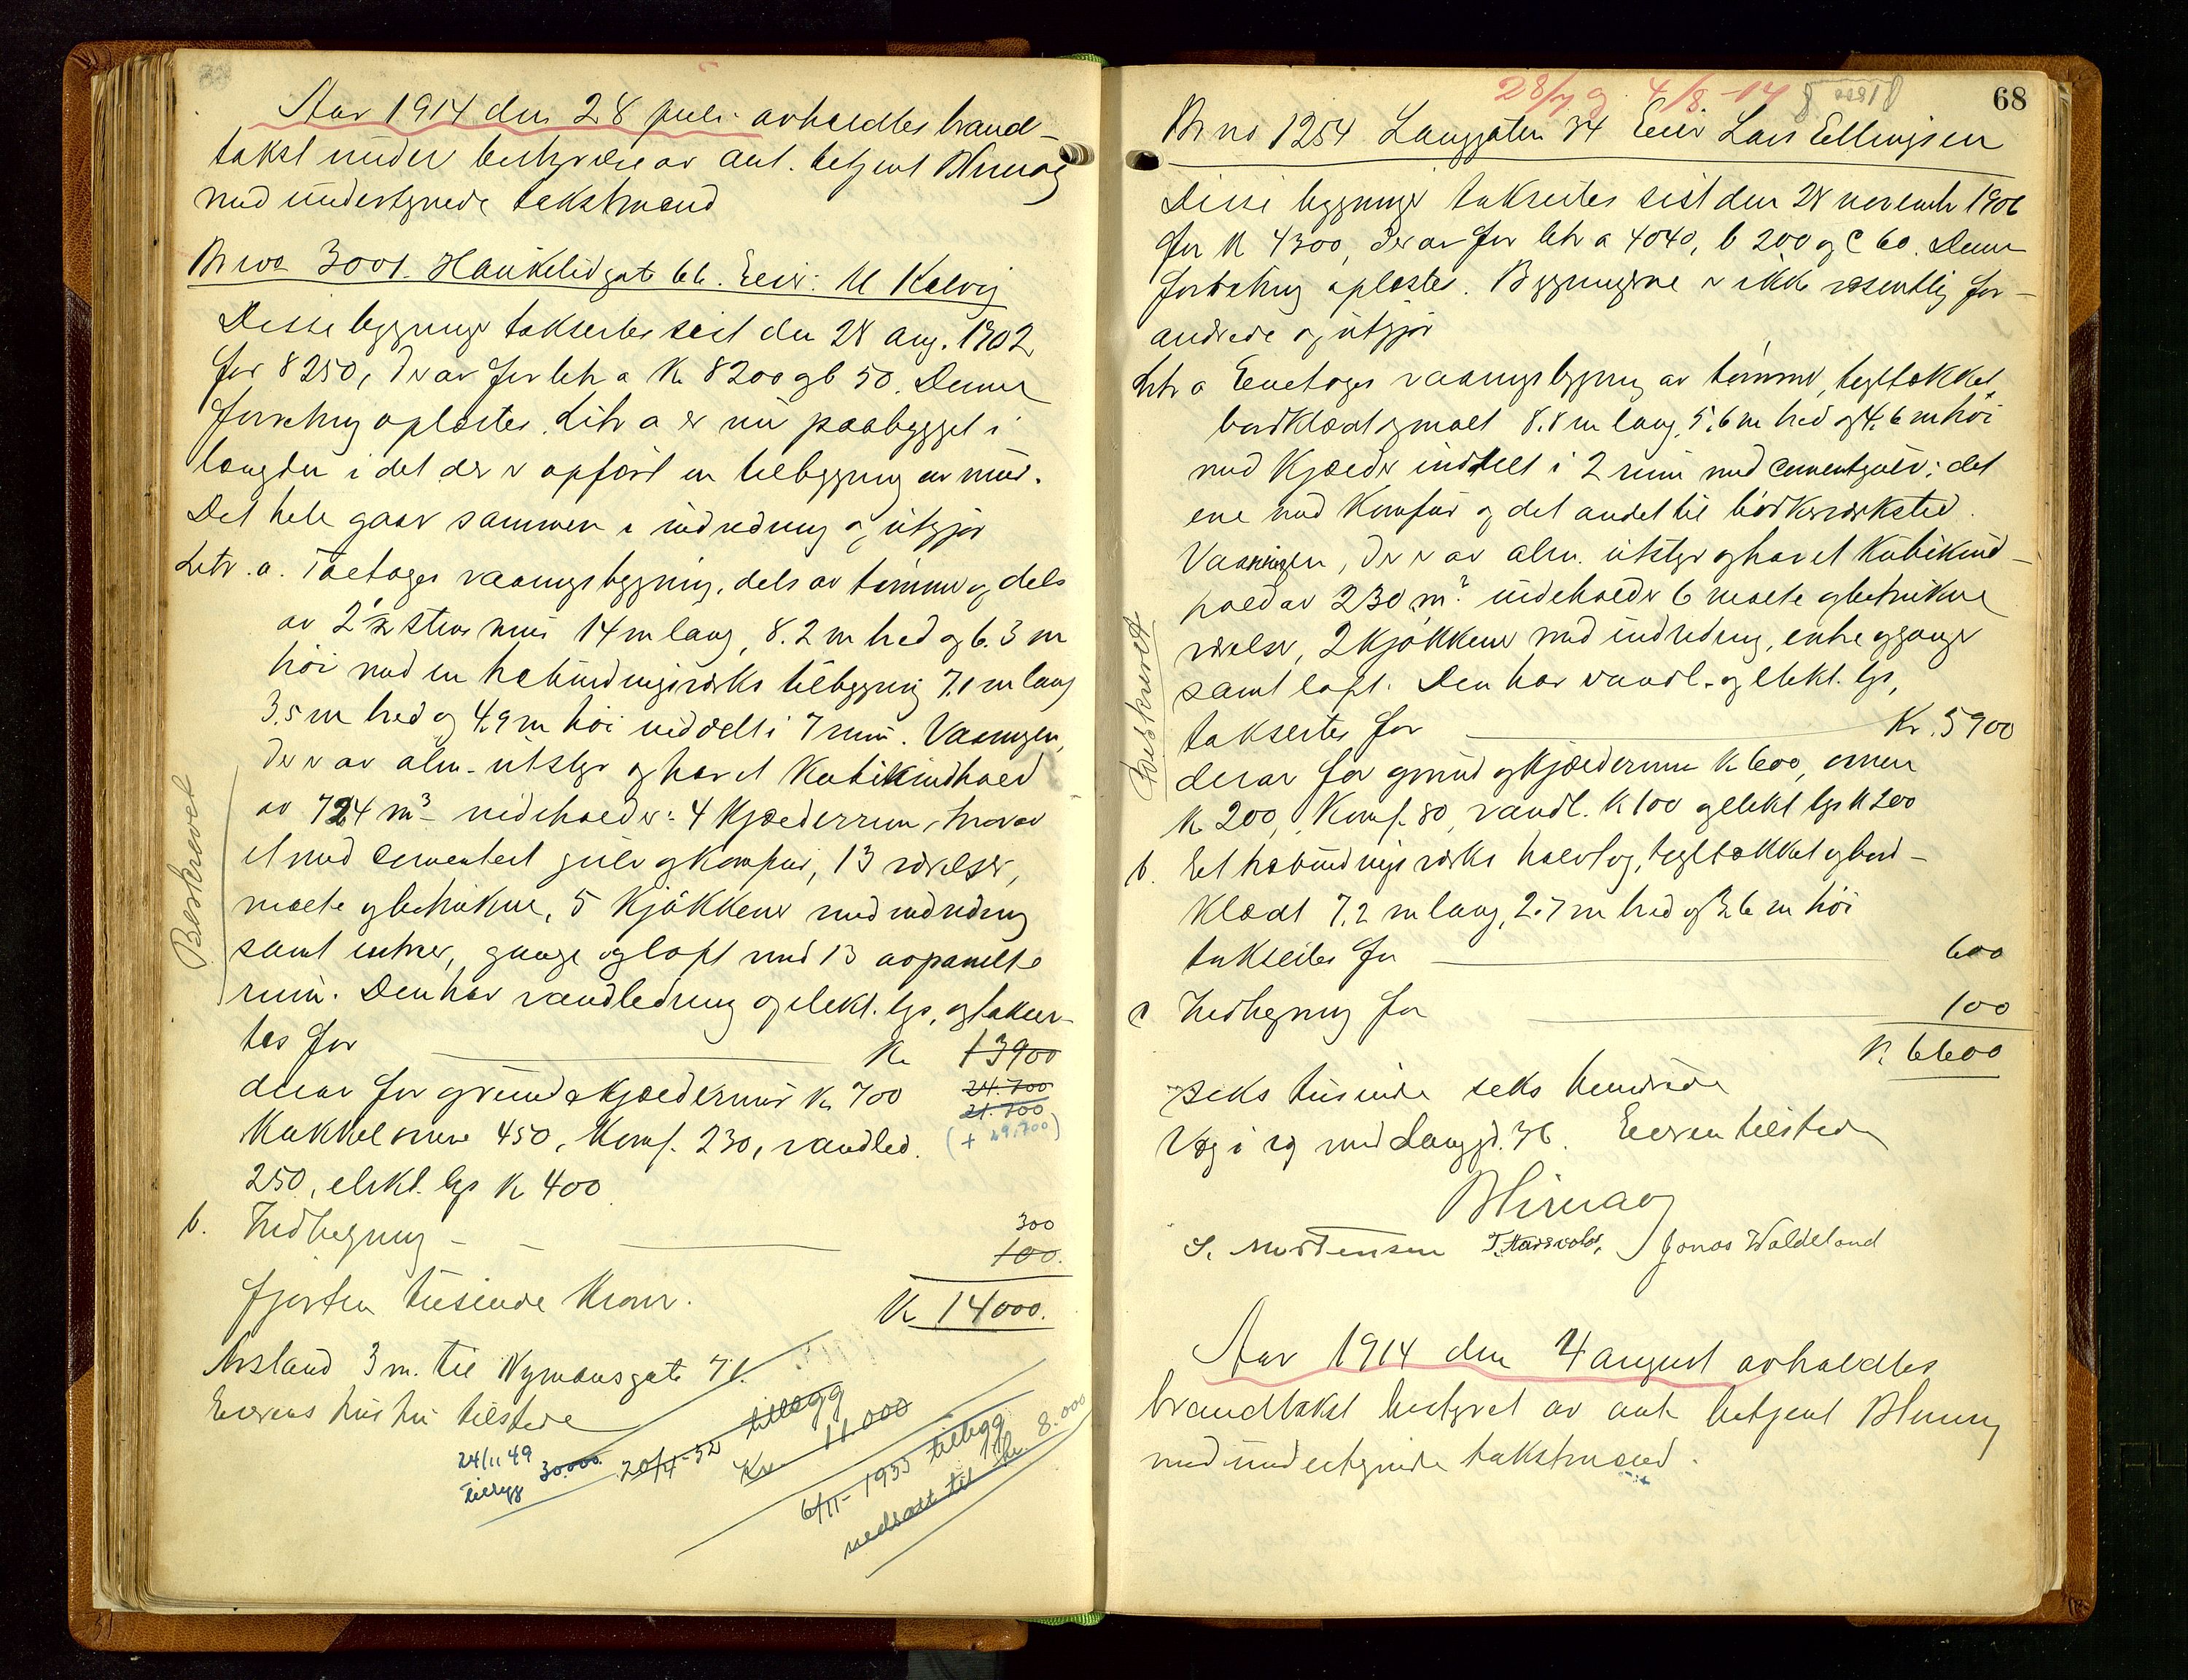 Aar 1914 den 28 juli avholdtes brand-
takst under bestyrelse av aut. betjent
med undertegnede takstmænd
Br no 3001. Haukelidgate 66. Eier: M Kalvig
Disse bygninger takseertes sist den 28 aug. 1902
for 8250, derav for litr a Kr 8200 og b 50. Denne
forretning oplæstes. Litr a er nu paabygget i
længden i det der er opført en tilbygning av mur.
Det hele gaar sammen i indredning og utgjør
Litr. a. Toetages vaaningsbygning, dels av tømmer og dels
av 2 1/2 stens mur 14 m lang, 8.2 m bred og 6.3 m
høi med en utbindingsverks tilbygning 7.1 m lang
3.5 m bred og 4.9 m høi inddelt i 7 rum. Vaaningen,
der er av alm. utstyr og har et Kubikindhold
av 724 m³ indeholder: 4 Kjælderrum, hvorav
et med cementert gulv og komfur, 13 værelser,
malte og betrukne, 5 Kjøkkener med indredning
samt entreer, gange og loft med 13 avpanelte
rum. Den har vandledning og elekt. lys, og takser-
tes for Kr 13900
derav for grund & kjældermur Kr 700 24.700
21.700
Kakkelovne 450, Komf. 230, vandled. (+ 29.700)
250, elekt. lys Kr 400
b. Indhegning 300
100.
fjorten tusinde Kroner. Kr 14000.
Avstand 3 m. til Nymansgate 71.
Eierens hustru tilstede
24/11 49
tillegg 30.000.
20/4-52 tillegg
Kr 11.000
6/11-1933 tillegg
nedsatt til Kr. 8.000
Beskrevet
28/7 og 4/8-14
68
Br no 1254 Langgaten 34 Eier Lars Ellingsen
Disse bygninger takseertes sist den 28 november 1906
for Kr 4300, derav for litr a 4040, b 200 og c 60. Denne
forretning oplæstes. Bygningerne er ikke væsentlig for-
andrede og utgjør
Litr a Enetages vaaningsbygning av tømmer, tegltækket,
bordklædt og malt 8.8 m lang, 5.6 m bred og 4.6 m høi
med Kjælder inddelt i 2 rum med cementgulv: det
ene med Komfur og det andet til bødkerverksted.
Vaaningen, der er av alm. utstyr og har et Kubikind-
hold av 230 m³ indeholder 6 malte og betrukne
værelser, 2 Kjøkkener med indredning, entre og gange
samt loft. Den har vandl. og elekt. lys,
takseertes for Kr. 5900
derav for grund og kjældermur Kr 600, ovner
Kr 200, Komf. 80, vandl. Kr 100 og elekt lys Kr 200
b. Et utbindingsverks halvtag, tegltækket og bord-
klædt 7.2 m lang, 2.7 m bred og 2.6 m høi
takseertes for 600
c Indhegning for 100
Kr 6600
seks tusinde seks hundrede
Væg i væg med Langgd. 36. Eieren tilstede
S. Mortensen Jonas Waldeland
Aar 1914 den 4 august avholdtes
brandtakst bestyret av aut. betjent
med undertegnede takstmænd.
Beskrevet